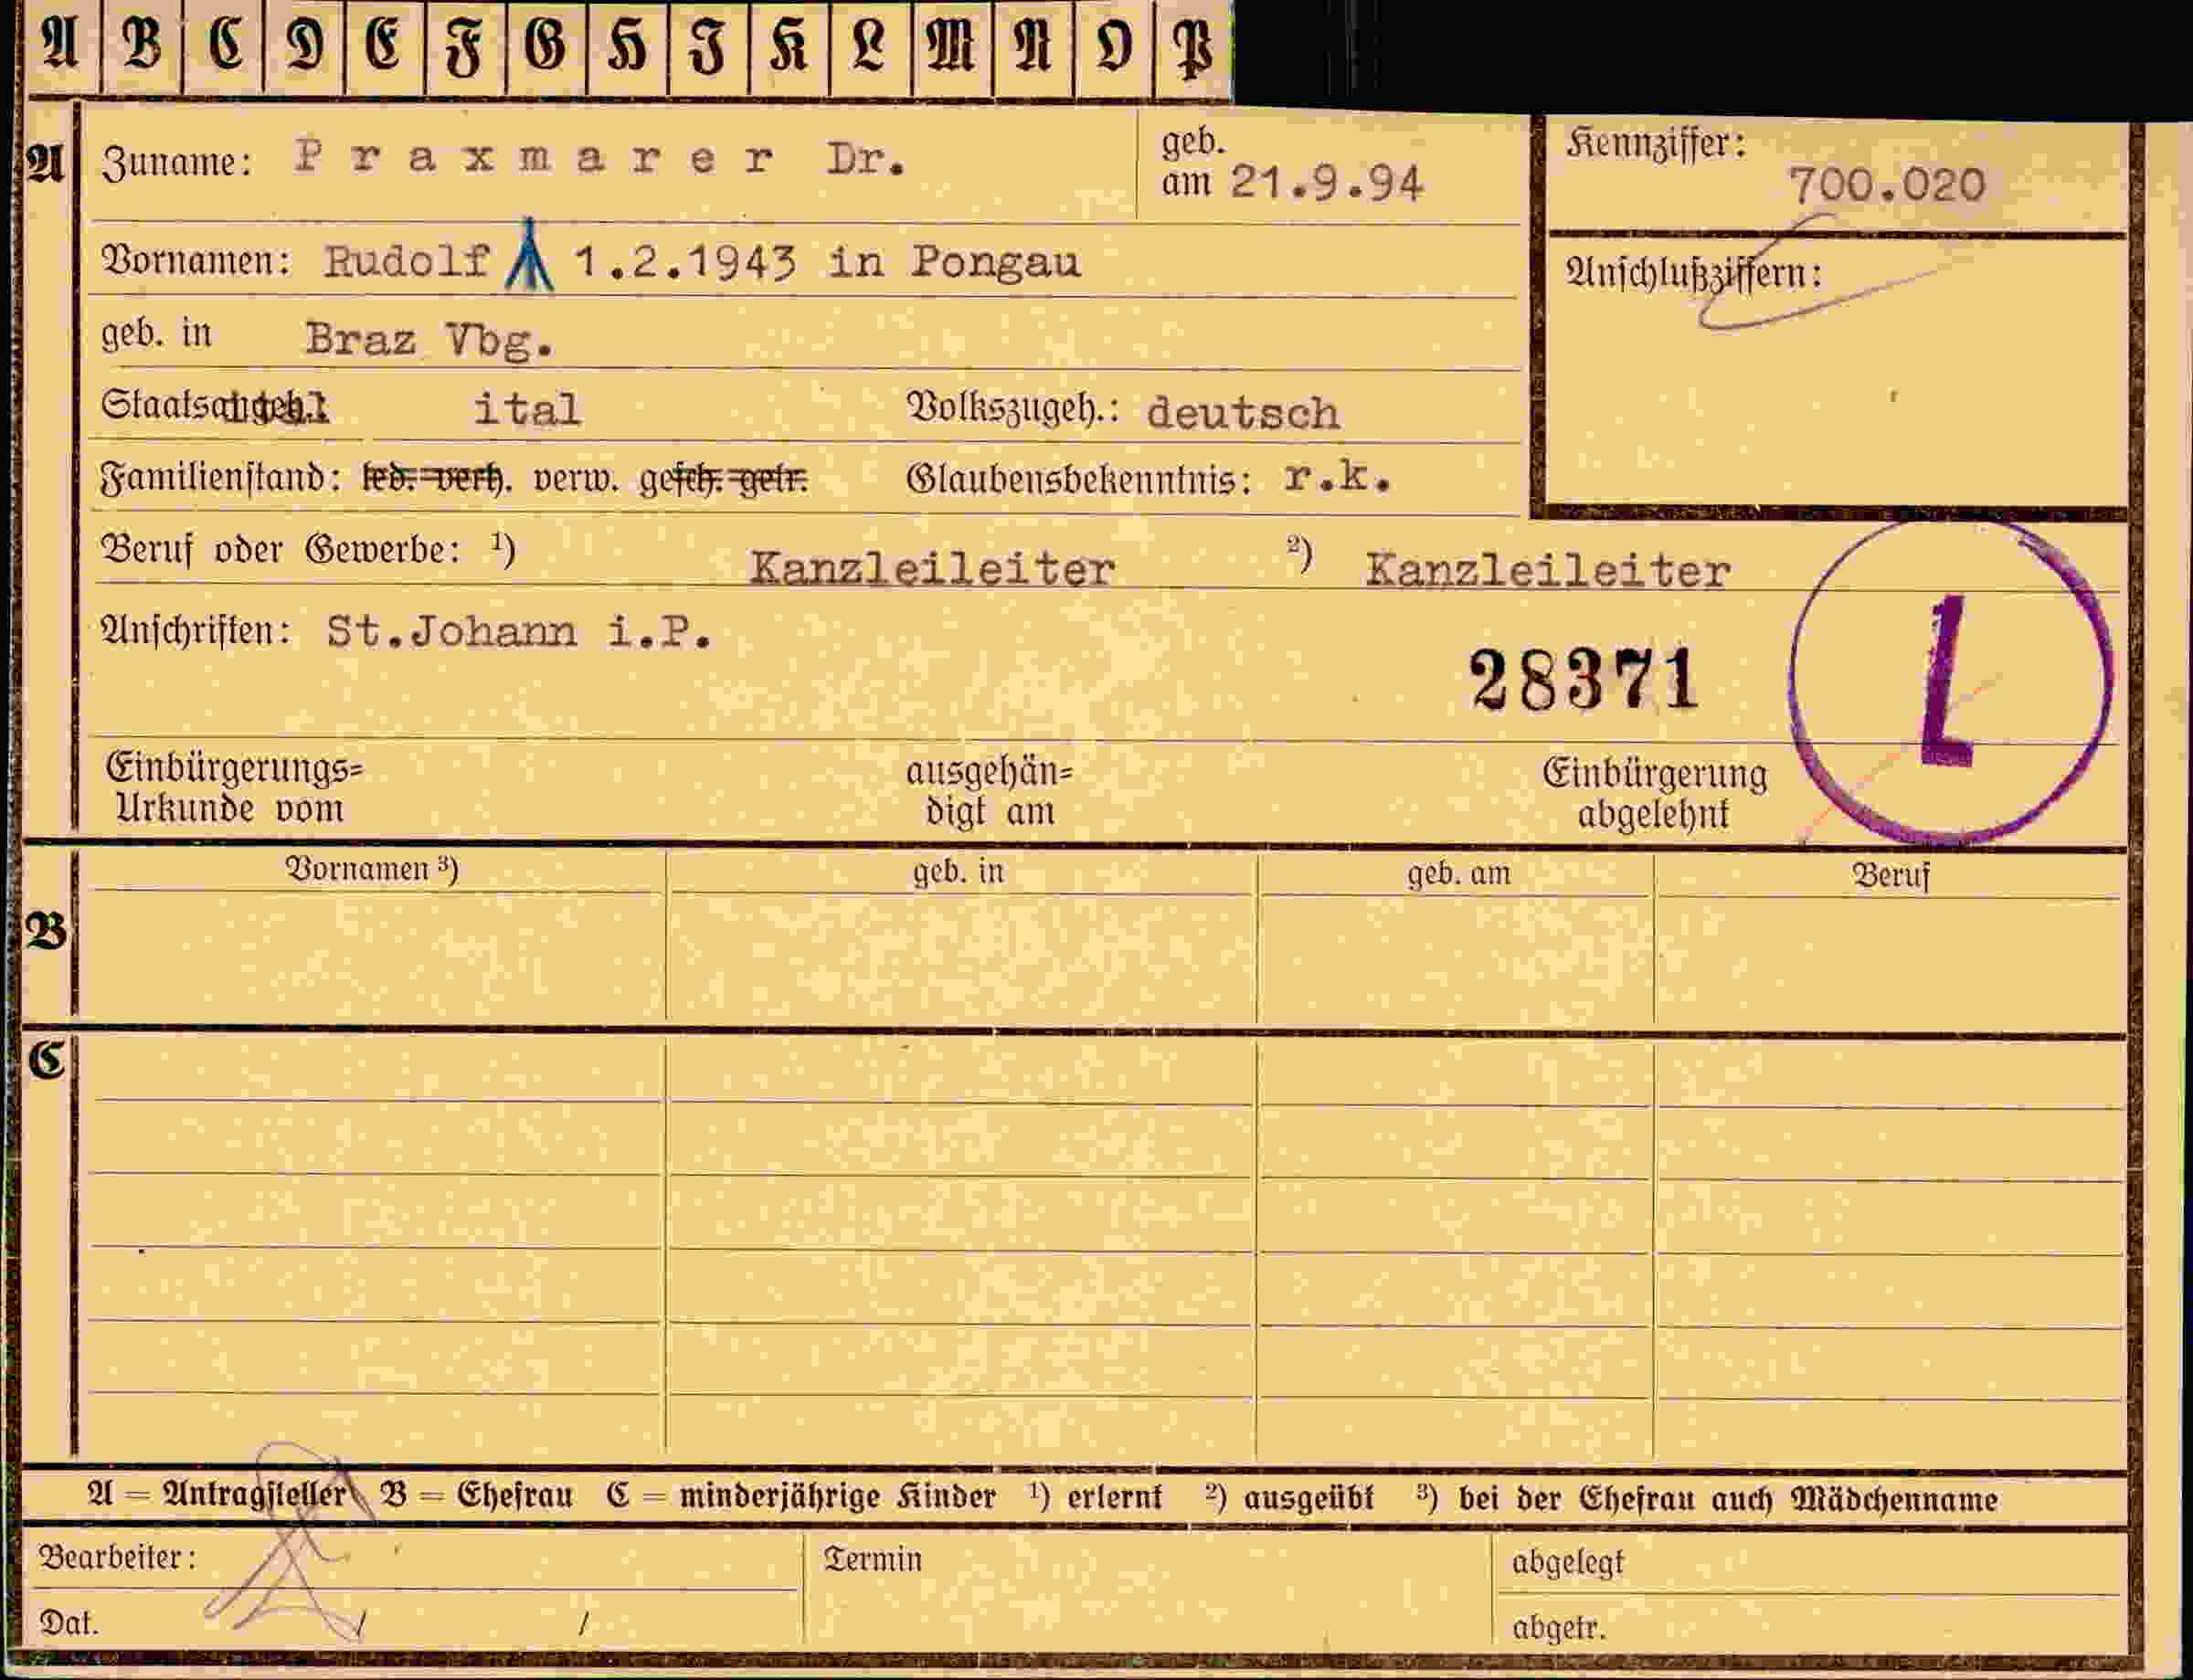 A B C D E F G H J K L M N O P
A Zuname: Praxmarer Dr. geb. am 21.9.94
Kennziffer: 700.020
Vornamen: Rudolf 1.2.1943 in Pongau
Anschlußziffern:
geb. in Braz Vbg.
Staatsangeh. ital Volkszugeh.: deutsch
Familienstand: led. verh. verw. gesch. getr. Glaubensbekenntnis: r.k.
Beruf oder Gewerbe: ¹) Kanzleileiter ²) Kanzleileiter
Anschriften: St.Johann i.P.
28371
L
Einbürgerungs= Urkunde vom
ausgehän= digt am
Einbürgerung abgelehnt
B Vornamen ³) geb. in geb. am Beruf
C
A = Antragsteller B = Ehefrau C = minderjährige Kinder ¹) erlernt ²) ausgeübt ³) bei der Ehefrau auch Mädchenname
Bearbeiter: Termin abgelegt
Dat. / / abgetr.